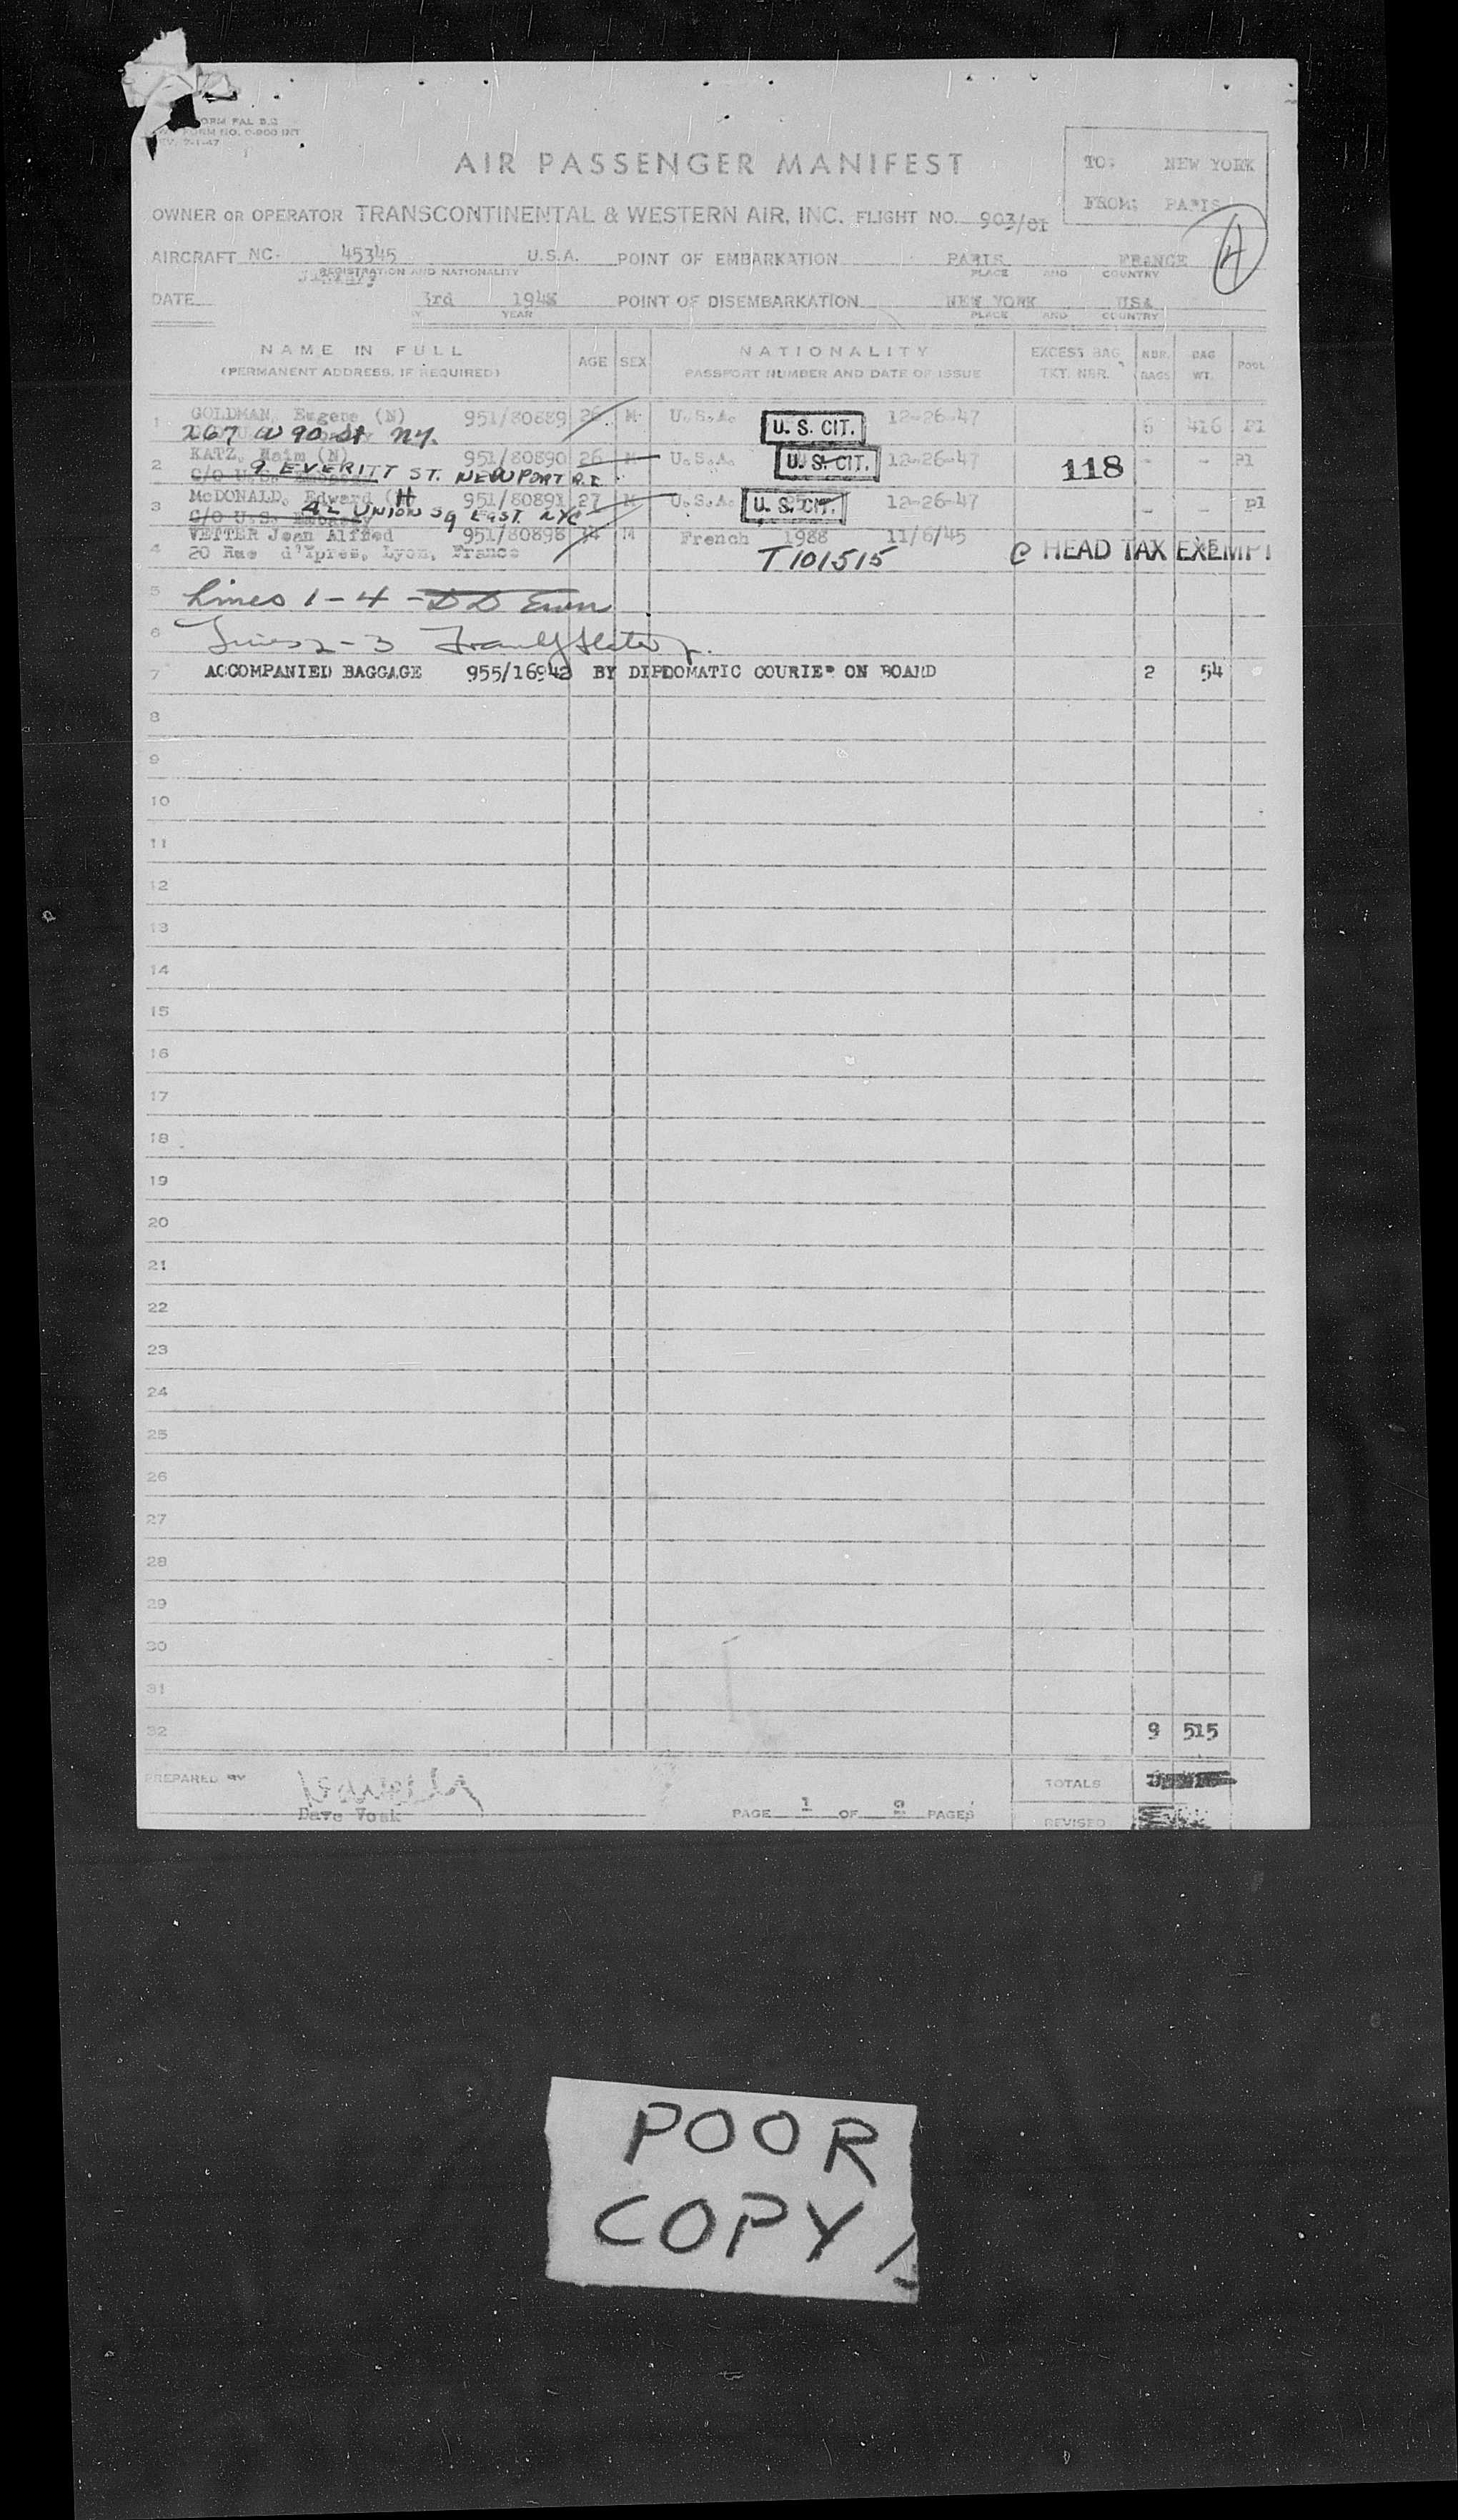 ORM FAL 8.2
FORM NO. 0-900 INT
EV. 7-1-47
AIR PASSENGER MANIFEST
TO: NEW YORK
FROM: PARIS
OWNER OR OPERATOR TRANSCONTINENTAL & WESTERN AIR, INC. FLIGHT NO. 903/01
AIRCRAFT NC- 45345 U.S.A. POINT OF EMBARKATION PARIS FRANCE
REGISTRATION AND NATIONALITY PLACE AND COUNTRY
January
DATE 3rd 1948 POINT OF DISEMBARKATION NEW YORK USA
YEAR PLACE AND COUNTRY
NAME IN FULL AGE SEX NATIONALITY EXCESS BAG NBR. BAG POOL
(PERMANENT ADDRESS, IF REQUIRED) PASSPORT NUMBER AND DATE OF ISSUE TKT. NBR. BAGS WT.
1 GOLDMAN, Eugene (N) 951/80889 26 M U.S.A. U. S. CIT. 12-26-47 416 P1
267 W 90 St NY.
2 KATZ, Haim (N) 951/80890 26 M U.S.A. U. S. CIT. 12-26-47 118 - - P1
C/O U.S. Embassy 9 EVERITT ST. NEWPORT R.I.
3 McDONALD, Edward (H 951/80891 27 M U.S.A. U. S. CIT. 12-26-47 - - P1
C/O U.S. Embassy 42 UNION SQ EAST. NYC
4 VETTER Jean Alfred 951/80898 M French 1988 11/6/45
20 Rue d'Ypres, Lyon, France T101515 HEAD TAX EXEMPT
5 Lines 1-4 -
6 Lines 2-3
7 ACCOMPANIED BAGGAGE 955/16942 BY DIPLOMATIC COURIER ON BOARD 2 54
8
9
10
11
12
13
14
15
16
17
18
19
20
21
22
23
24
25
26
27
28
29
30
31
32 9 515
PREPARED BY TOTALS
Dave Vosk PAGE 1 OF PAGES REVISED
POOR
COPY